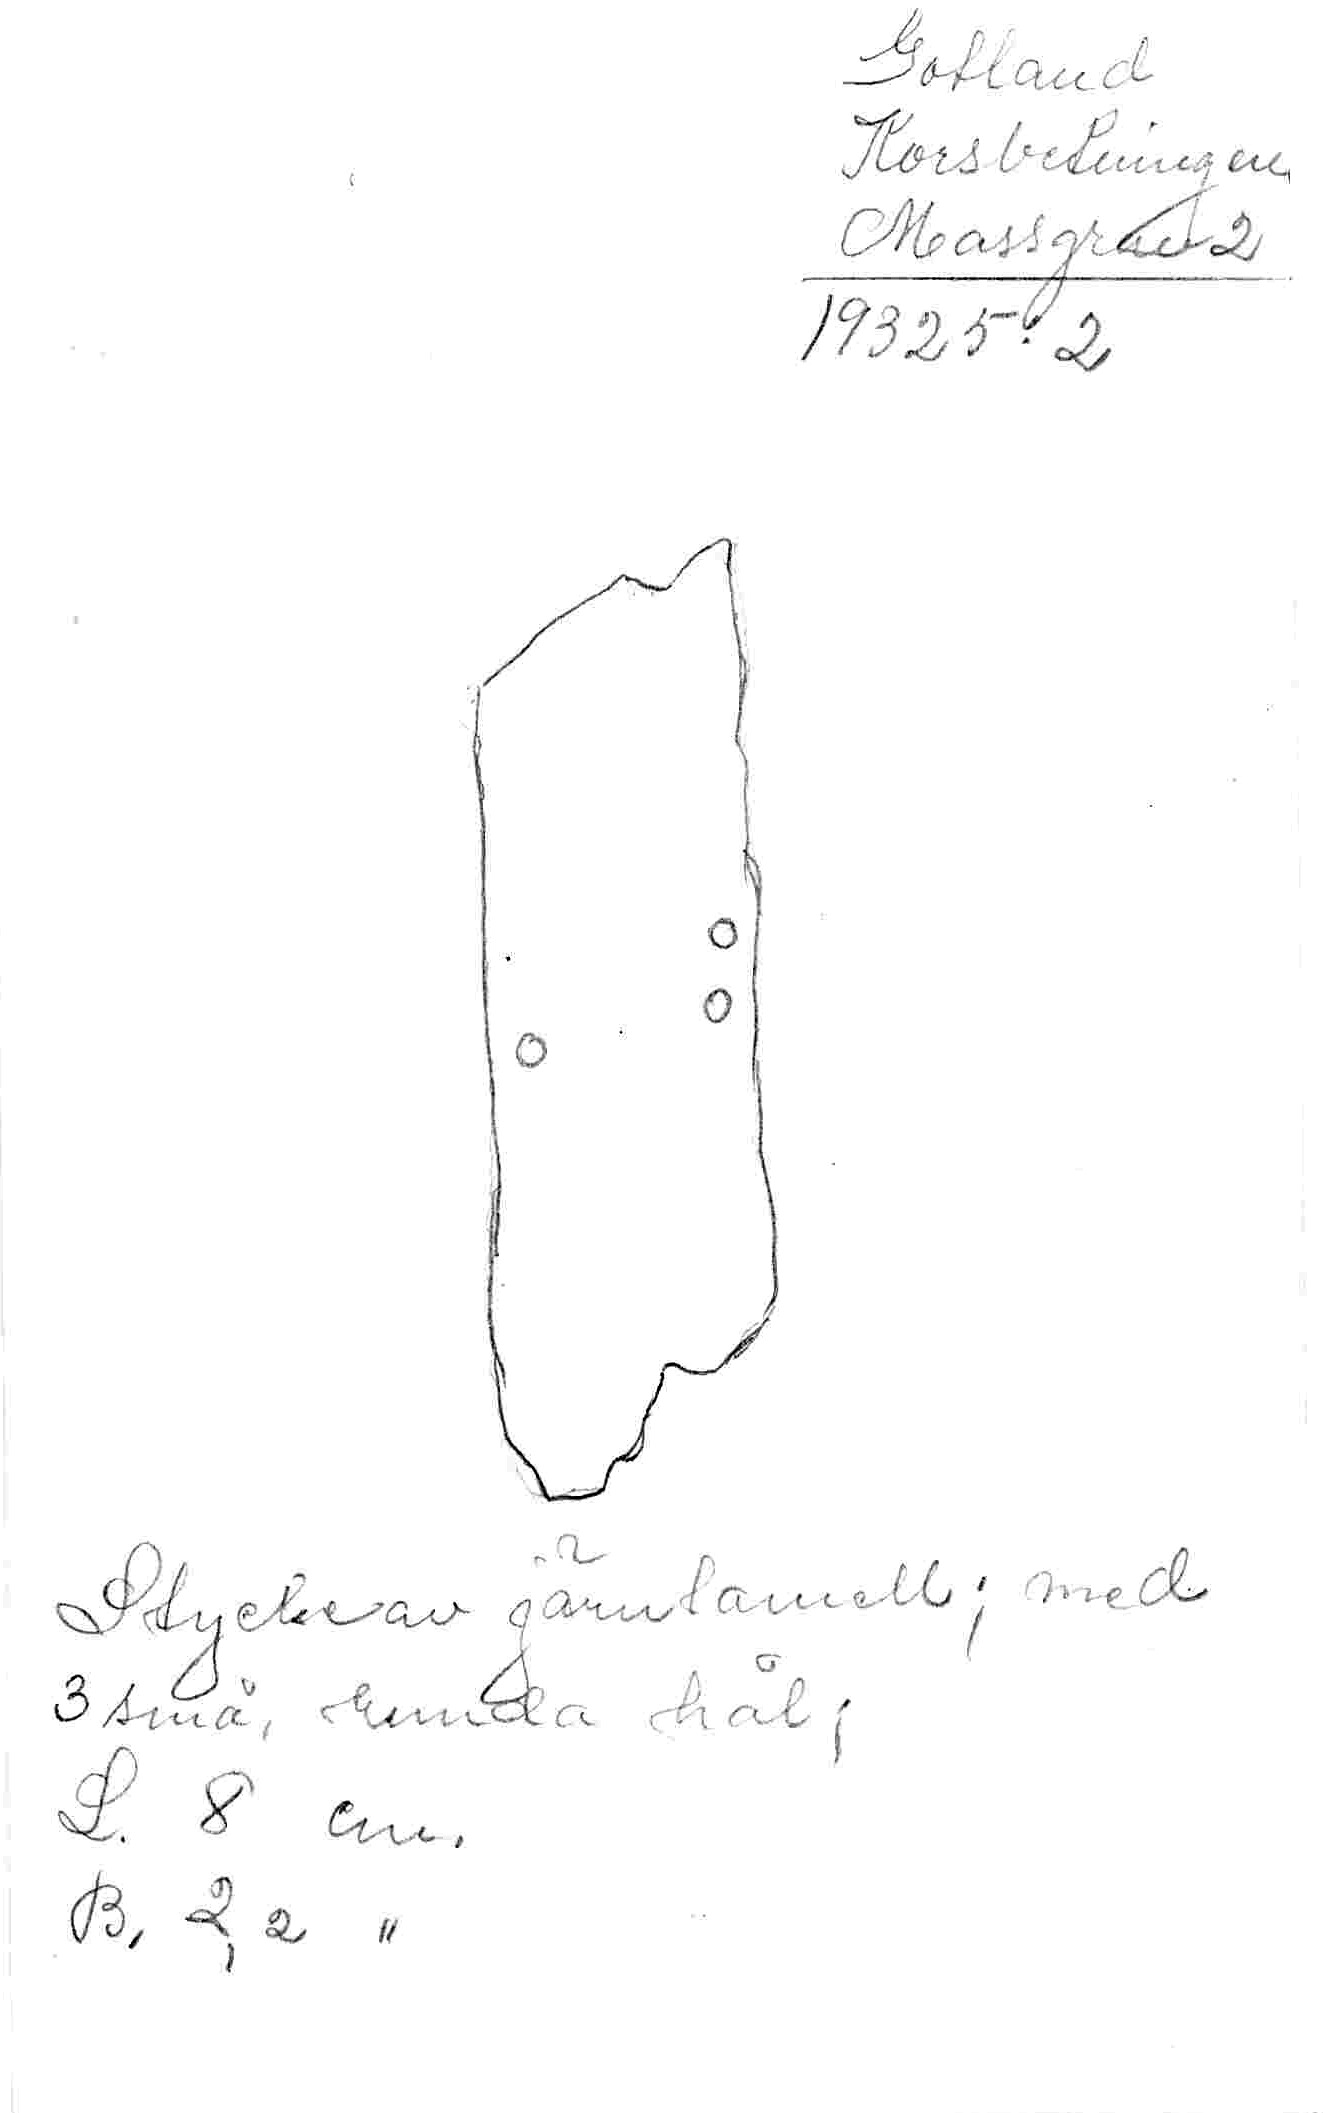 Gotland
Korsbetningen
Massgrav 2
19325:2
Stycke av järnlamell; med
3 små, runda hål;
L. 8 cm.
B. 2,2 "